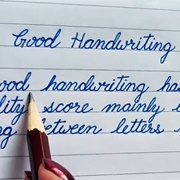 Good Handwriting
ood handwriting has
lity score mainly
ng between letters